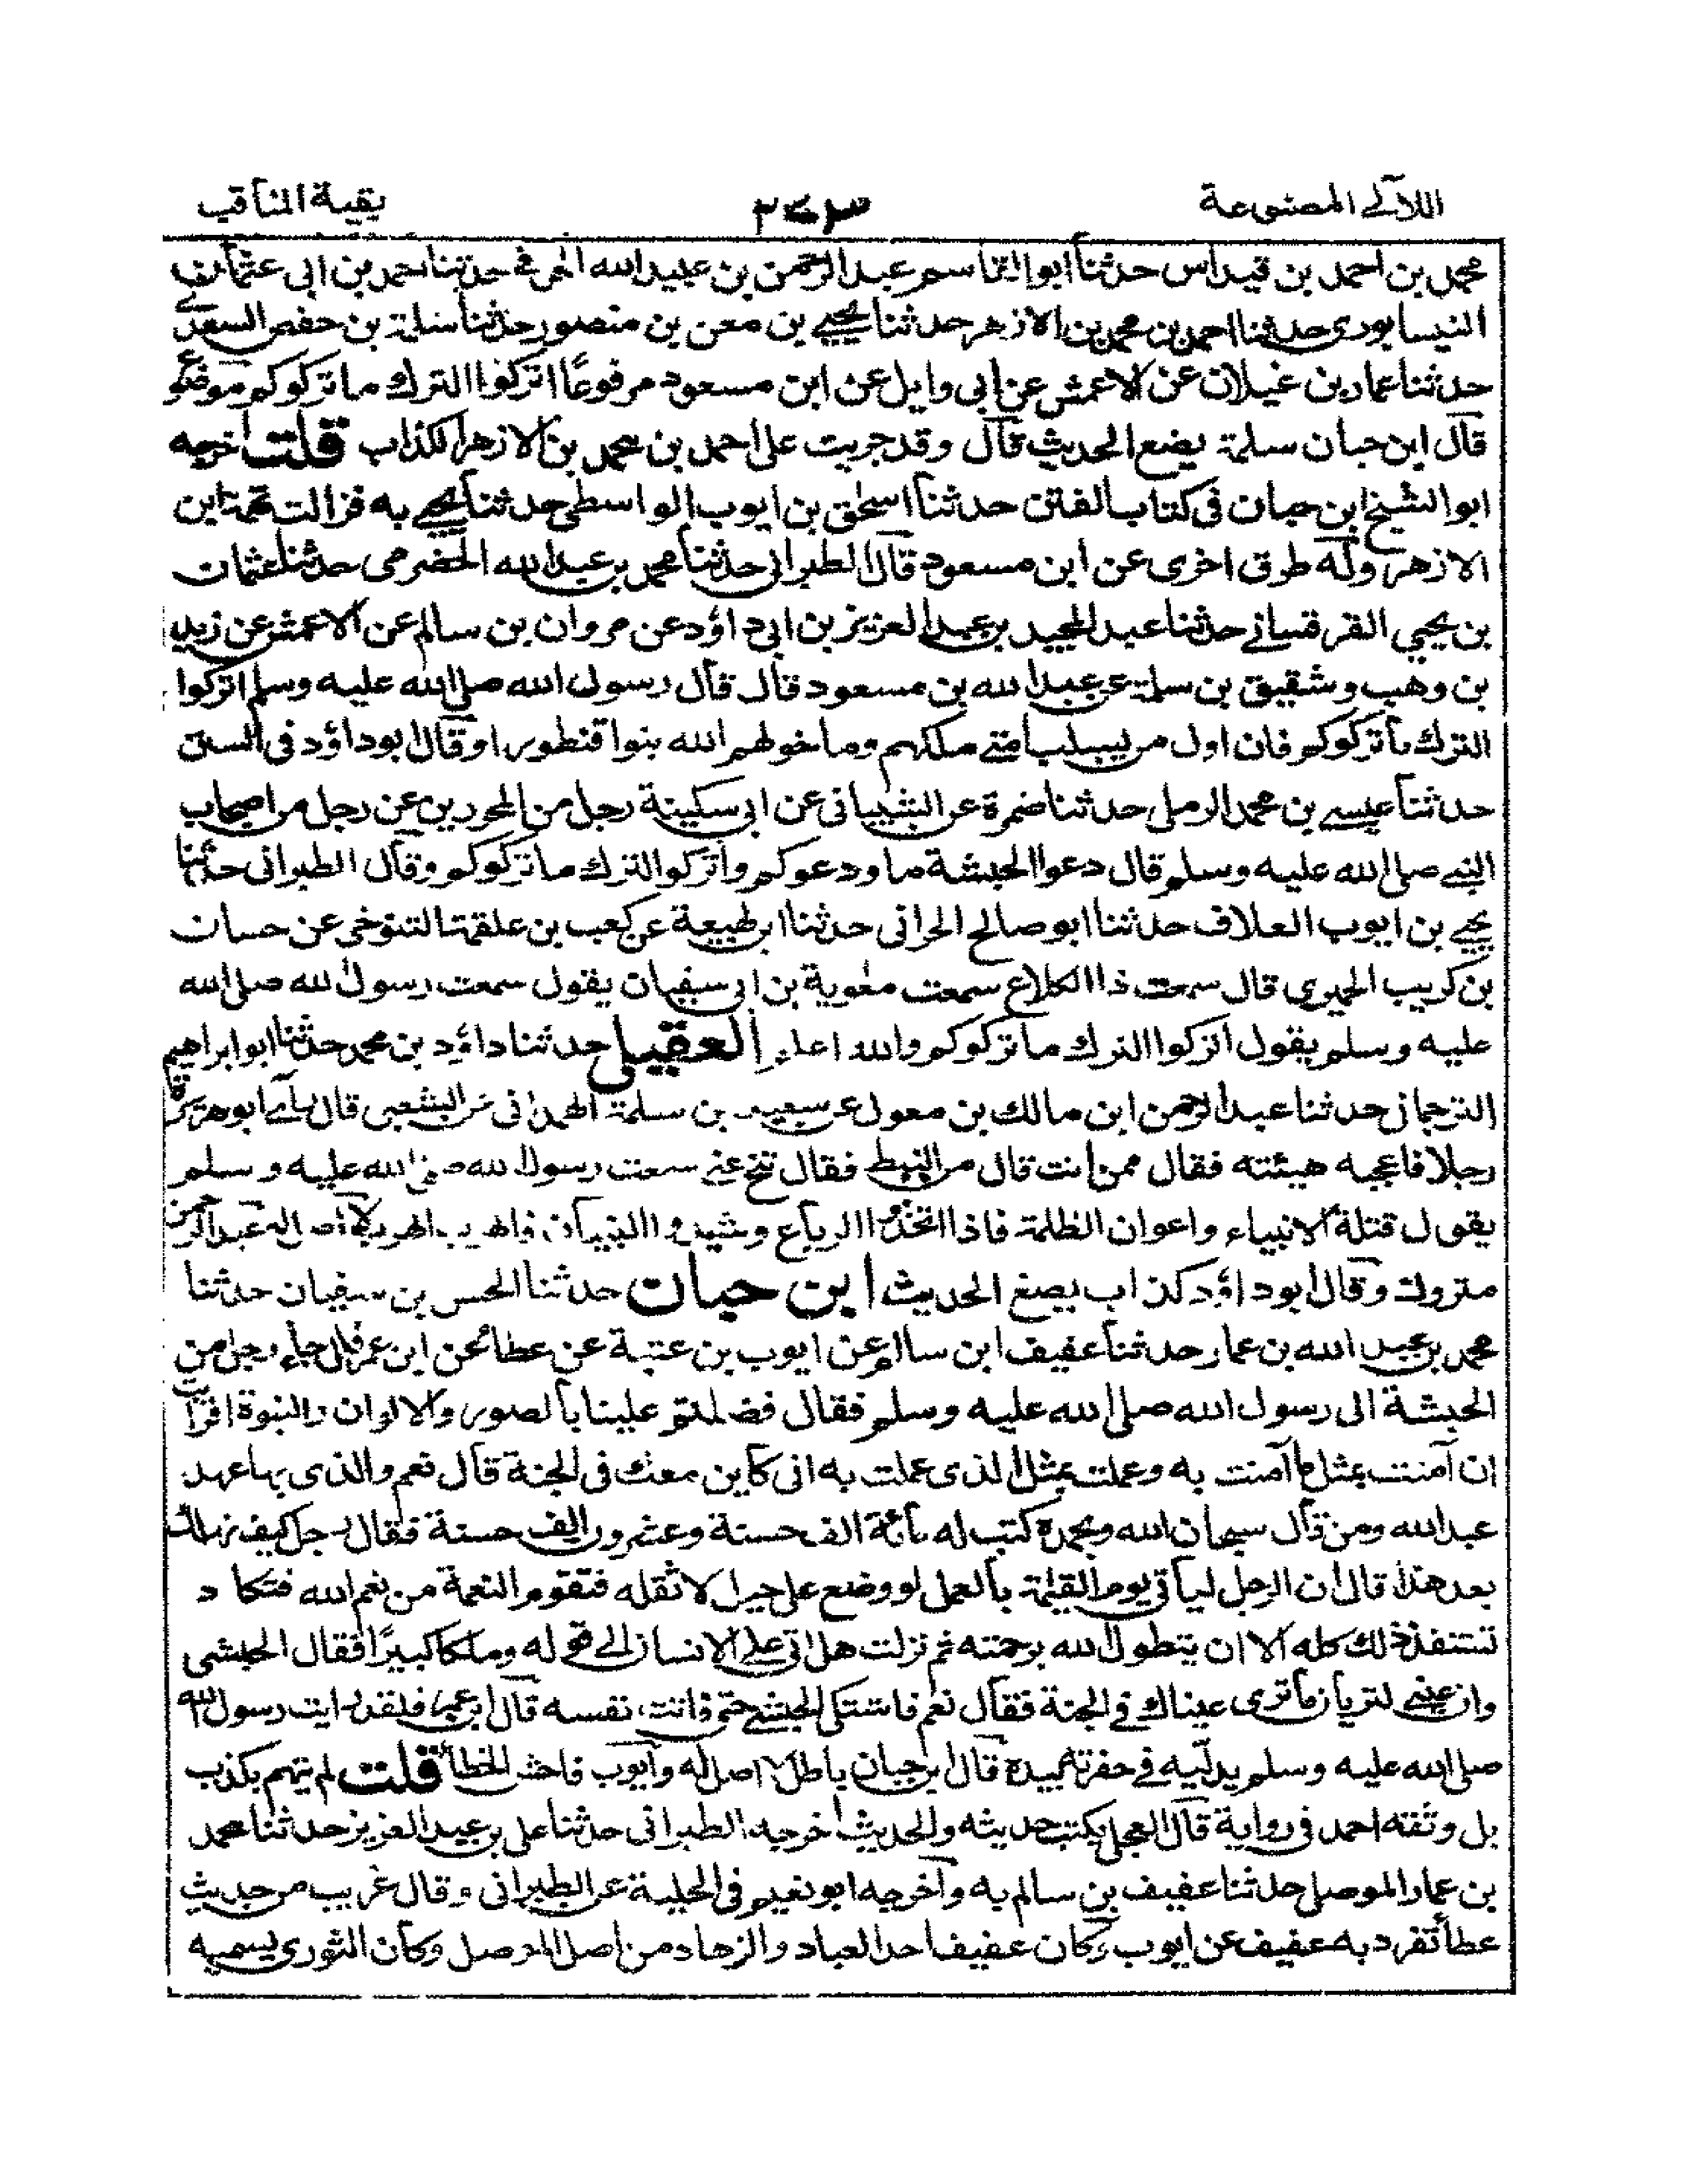 اللآلي المصنوعة
بقية المناقب
محمد بن احمد بن قيداس حدثنا ابوالقاسم عبدالرحمن بن عبيدالله الحرفي حدثنا حمد بن ابى عثمان
النيسابورى حدثنا احمد بن محمد بن الازهر حدثنا يحيى بن معن بن منصور حدثنا سلمة بن حفص السعدى
حدثنا عمار بن غيلان عن الاعمش عن ابى وايل عن ابن مسعود مرفوعًا اتركوا الترك ما تركوكم موضوع
قال ابن حبان سلمة يضع الحديث قال وقد جربت على احمد بن محمد بن الازهر الكذاب قلت اخرجه
ابوالشيخ ابن حبان فى كتاب الفتن حدثنا اسحٰق بن ايوب الواسطى حدثنا يحيى به فزالت تهمة ابن
الازهر وله طرق اخرى عن ابن مسعود قال الطبرانى حدثنا محمد بن عبدالله الحضرمى حدثنا عثمان
بن يحيي القرقسانى حدثنا عبدالمجيد بن عبدالعزيز بن ابى داؤد عن مروان بن سالم عن الاعمش عن زيد
بن وهب وشقيق بن سلمة عن عبدالله بن مسعود قال قال رسول الله صلى الله عليه وسلم اتركوا
الترك ما تركوكم فان اول من يسلب امتى ملكهم وما خولهم الله بنوا قنطورا وقال ابوداؤد فى السنن
حدثنا عيسى بن محمد الرملى حدثنا ضمرة عن الشيبانى عن ابى سكينة رجل من المحررين عن رجل من اصحاب
النبى صلى الله عليه وسلم قال دعوا الحبشة ما ودعوكم واتركوا الترك ما تركوكم وقال الطبرانى حدثنا
يحيى بن ايوب العلاف حدثنا ابوصالح الحرانى حدثنا ابن لهيعة عن كعب بن علقمة التنوخى عن حسان
بن كريب الحميرى قال سمعت ذا الكلاع سمعت معٰوية بن ابى سفيان يقول سمعت رسول الله صلى الله
عليه وسلم يقول اتركوا الترك ما تركوكم والله اعلم العقيلى حدثنا داؤد بن محمد حدثنا ابوابراهيم
الترجمانى حدثنا عبدالرحمن ابن مالك بن معول عن سعيد بن سلمة الهمدانى عن الشعبى قال رأى ابوهريرة
رجلا فاعجبه هيئته فقال ممن انت قال من النبط فقال تنح عنى سمعت رسول الله صلى الله عليه وسلم
يقول قتلة الانبياء واعوان الظلمة فاذا اتخذوا الرباع وشيدوا البنيان فالهرب الهرب لا اصل له عبدالرحمن
متروك وقال ابوداؤد كذاب يضع الحديث ابن حبان حدثنا الحسن بن سفيان حدثنا
محمد بن عبدالله بن عمار حدثنا عفيف ابن سالم عن ايوب بن عتبة عن عطاء عن ابن عمر قال جاء رجل من
الحبشة الى رسول الله صلى الله عليه وسلم فقال فضلتم علينا بالصور والالوان والنبوة افرأيت
ان آمنت بمثل ما آمنت به وعملت بمثل الذى عملت به انى كاين معك فى الجنة قال نعم والذى بها عهد
عبدالله ومن قال سبحان الله وبحمده كتب له مائة الف حسنة وعشرون الف حسنة فقال رجل كيف نهلك
بعد هذا قال ان الرجل ليأتى يوم القيٰمة بالعمل لو وضع على جبل لاثقله فتقوم النعمة من نعم الله فتكاد
تستنفذ ذلك كله الا ان يتطول الله برحمته ثم نزلت هل اتى على الانسان الى قوله وملكا كبيرًا فقال الحبشى
وان عينى لتريان ما ترى عيناك فى الجنة فقال نعم فاشتكى الحبشى حتى فاتت نفسه قال ابن عمر فلقد رايت رسول الله
صلى الله عليه وسلم يدليه فى حفرته بيده قال ابن حبان باطل لا اصل له وايوب فاحش الخطأ قلت لم يتهم بكذب
بل وثقه احمد فى رواية قال العجلى يكتب حديثه والحديث اخرجه الطبرانى حدثنا على بن عبدالعزيز حدثنا محمد
بن عمار الموصلى حدثنا عفيف بن سالم به وآخرجه ابونعيم فى الحلية عن الطبرانى وقال غريب من حديث
عطا تفرد به عفيف عن ايوب وكان عفيف احد العباد والزهاد من اصل الموصل وكان الثورى يسميه